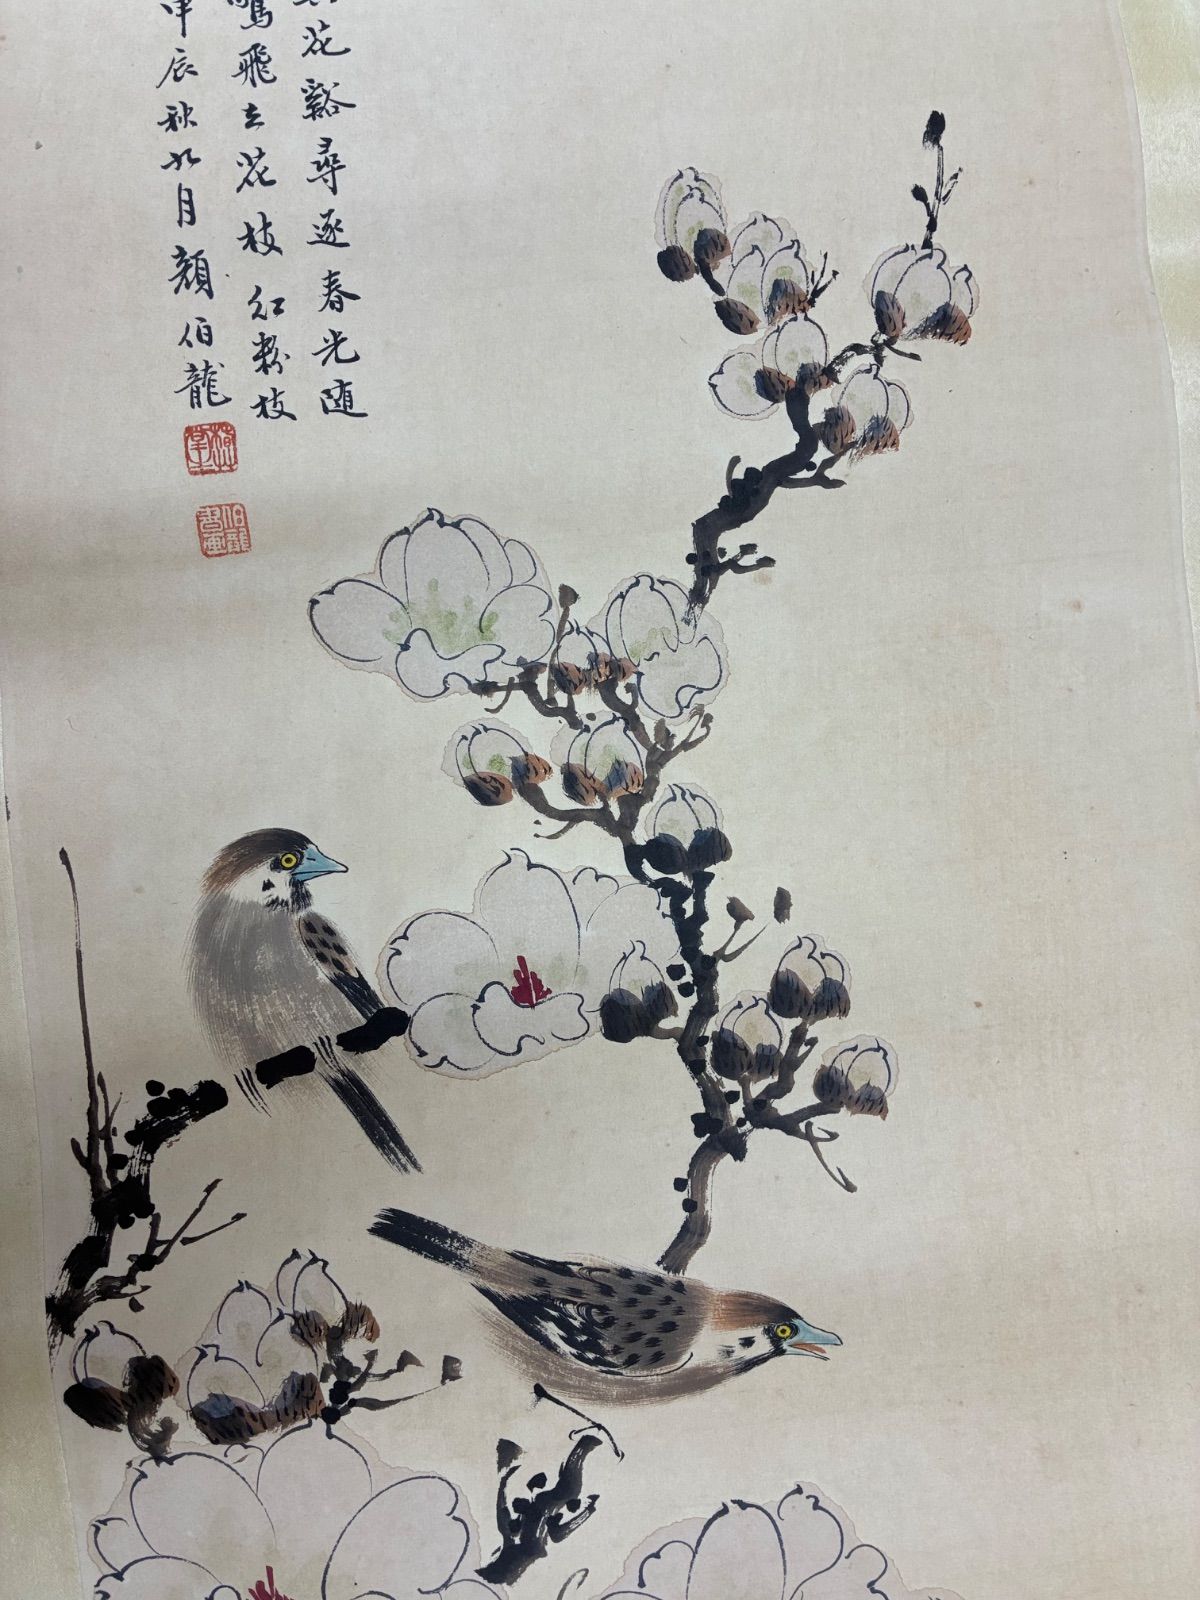 花谿尋逐春光随
鳴飛去花枝紅粉枝
甲辰秋九月顔伯龍
伯龍書畫